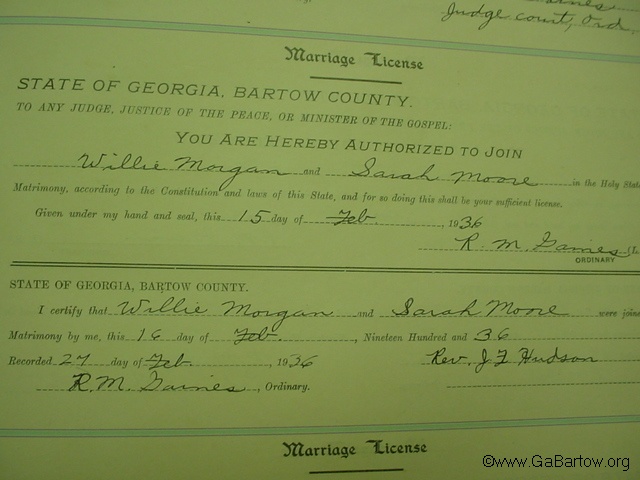 Judge court, Ord.
Marriage License
STATE OF GEORGIA, BARTOW COUNTY.
TO ANY JUDGE, JUSTICE OF THE PEACE, OR MINISTER OF THE GOSPEL:
YOU ARE HEREBY AUTHORIZED TO JOIN
Willie Morgan and Sarah Moore in the Holy State
Matrimony, according to the Constitution and laws of this State, and for so doing this shall be your sufficient license.
Given under my hand and seal, this 15 day of Feb, 1936
R. M. Gaines (L.
ORDINARY
STATE OF GEORGIA, BARTOW COUNTY.
I certify that Willie Morgan and Sarah Moore were joine
Matrimony by me, this 16 day of Feb., Nineteen Hundred and 36
Recorded 27 day of Feb 1936 Rev. J Hudson
R.M. Gaines, Ordinary.
Marriage License
©www.GaBartow.org